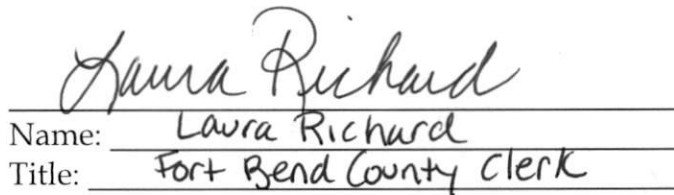 Laura Richard
Name: Laura Richard
Title: Fort Bend County Clerk